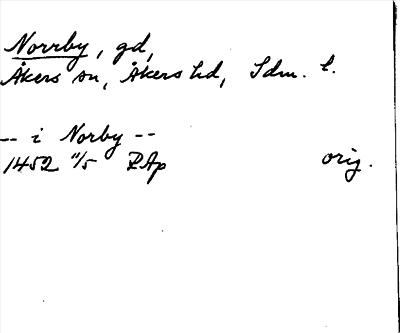 Norrby, gd,
Åkers sn, Åkers hd, Sdm. l.
-- i Norby --
1452 11/5 RAp orig.